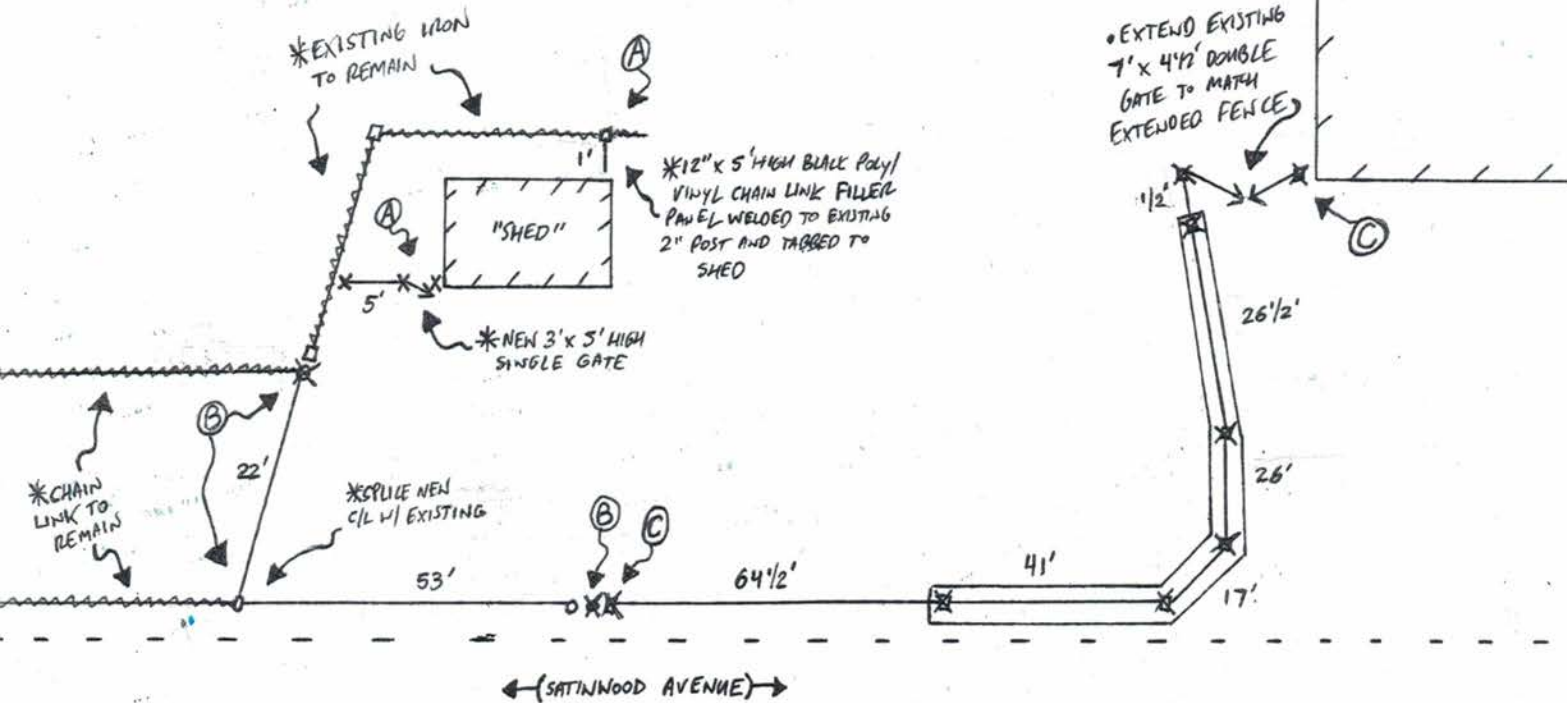 *EXISTING IRON
TO REMAIN
A
•EXTEND EXISTING
7' x 4'1/2' DOUBLE
GATE TO MATCH
EXTENDED FENCE
1'
*12" x 5' HIGH BLACK POLY/
VINYL CHAIN LINK FILLER
PANEL WELDED TO EXISTING
2" POST AND TABBED TO
SHED
A
"SHED"
5'
*NEW 3' x 5' HIGH
SINGLE GATE
1/2'
C
26'1/2'
B
22'
*CHAIN
LINK TO
REMAIN
*SPLICE NEW
C/L W/ EXISTING
B
C
26'
53'
64'1/2'
41'
17'
(SATINWOOD AVENUE)